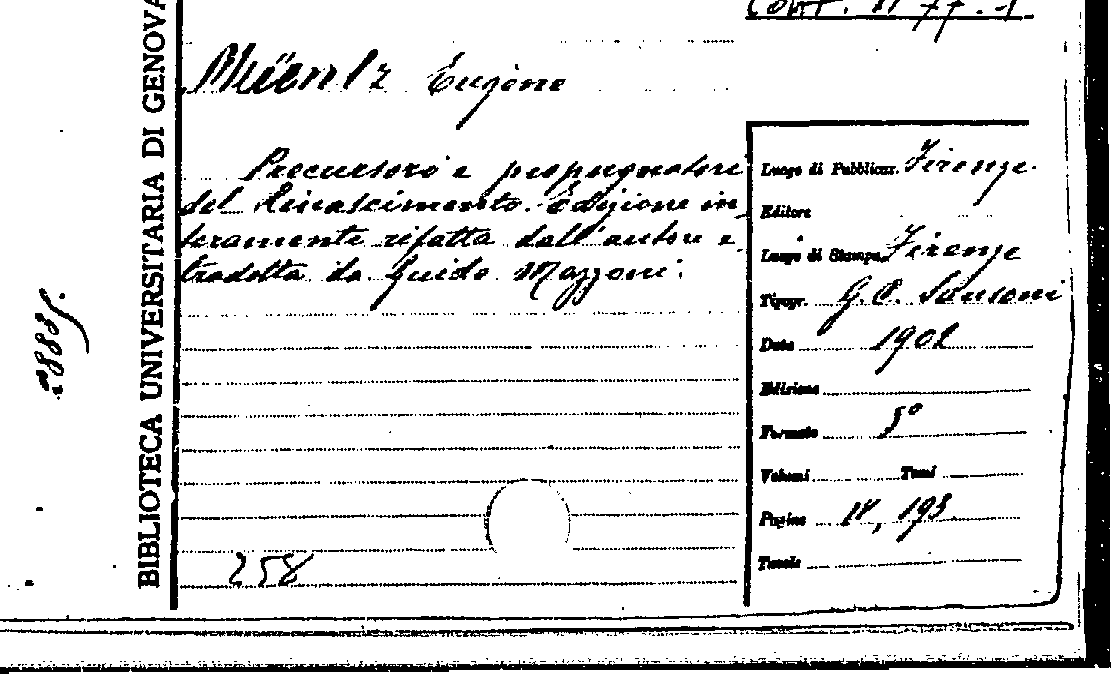 Müentz Eugène
Precursori e propugnatori
del Rinascimento. Edizione in
teramente rifatta dall'autore e
tradotta da Guido Mazzoni.
258
BIBLIOTECA UNIVERSITARIA DI GENOVA
Luogo di Pubblicaz. Firenze
Editore
Luogo di Stampa Firenze
Tipogr. G. C. Sansoni
Data 1902
Edizione
Formato 8°
Volumi Tomi
Pagine IV, 193
Tavole